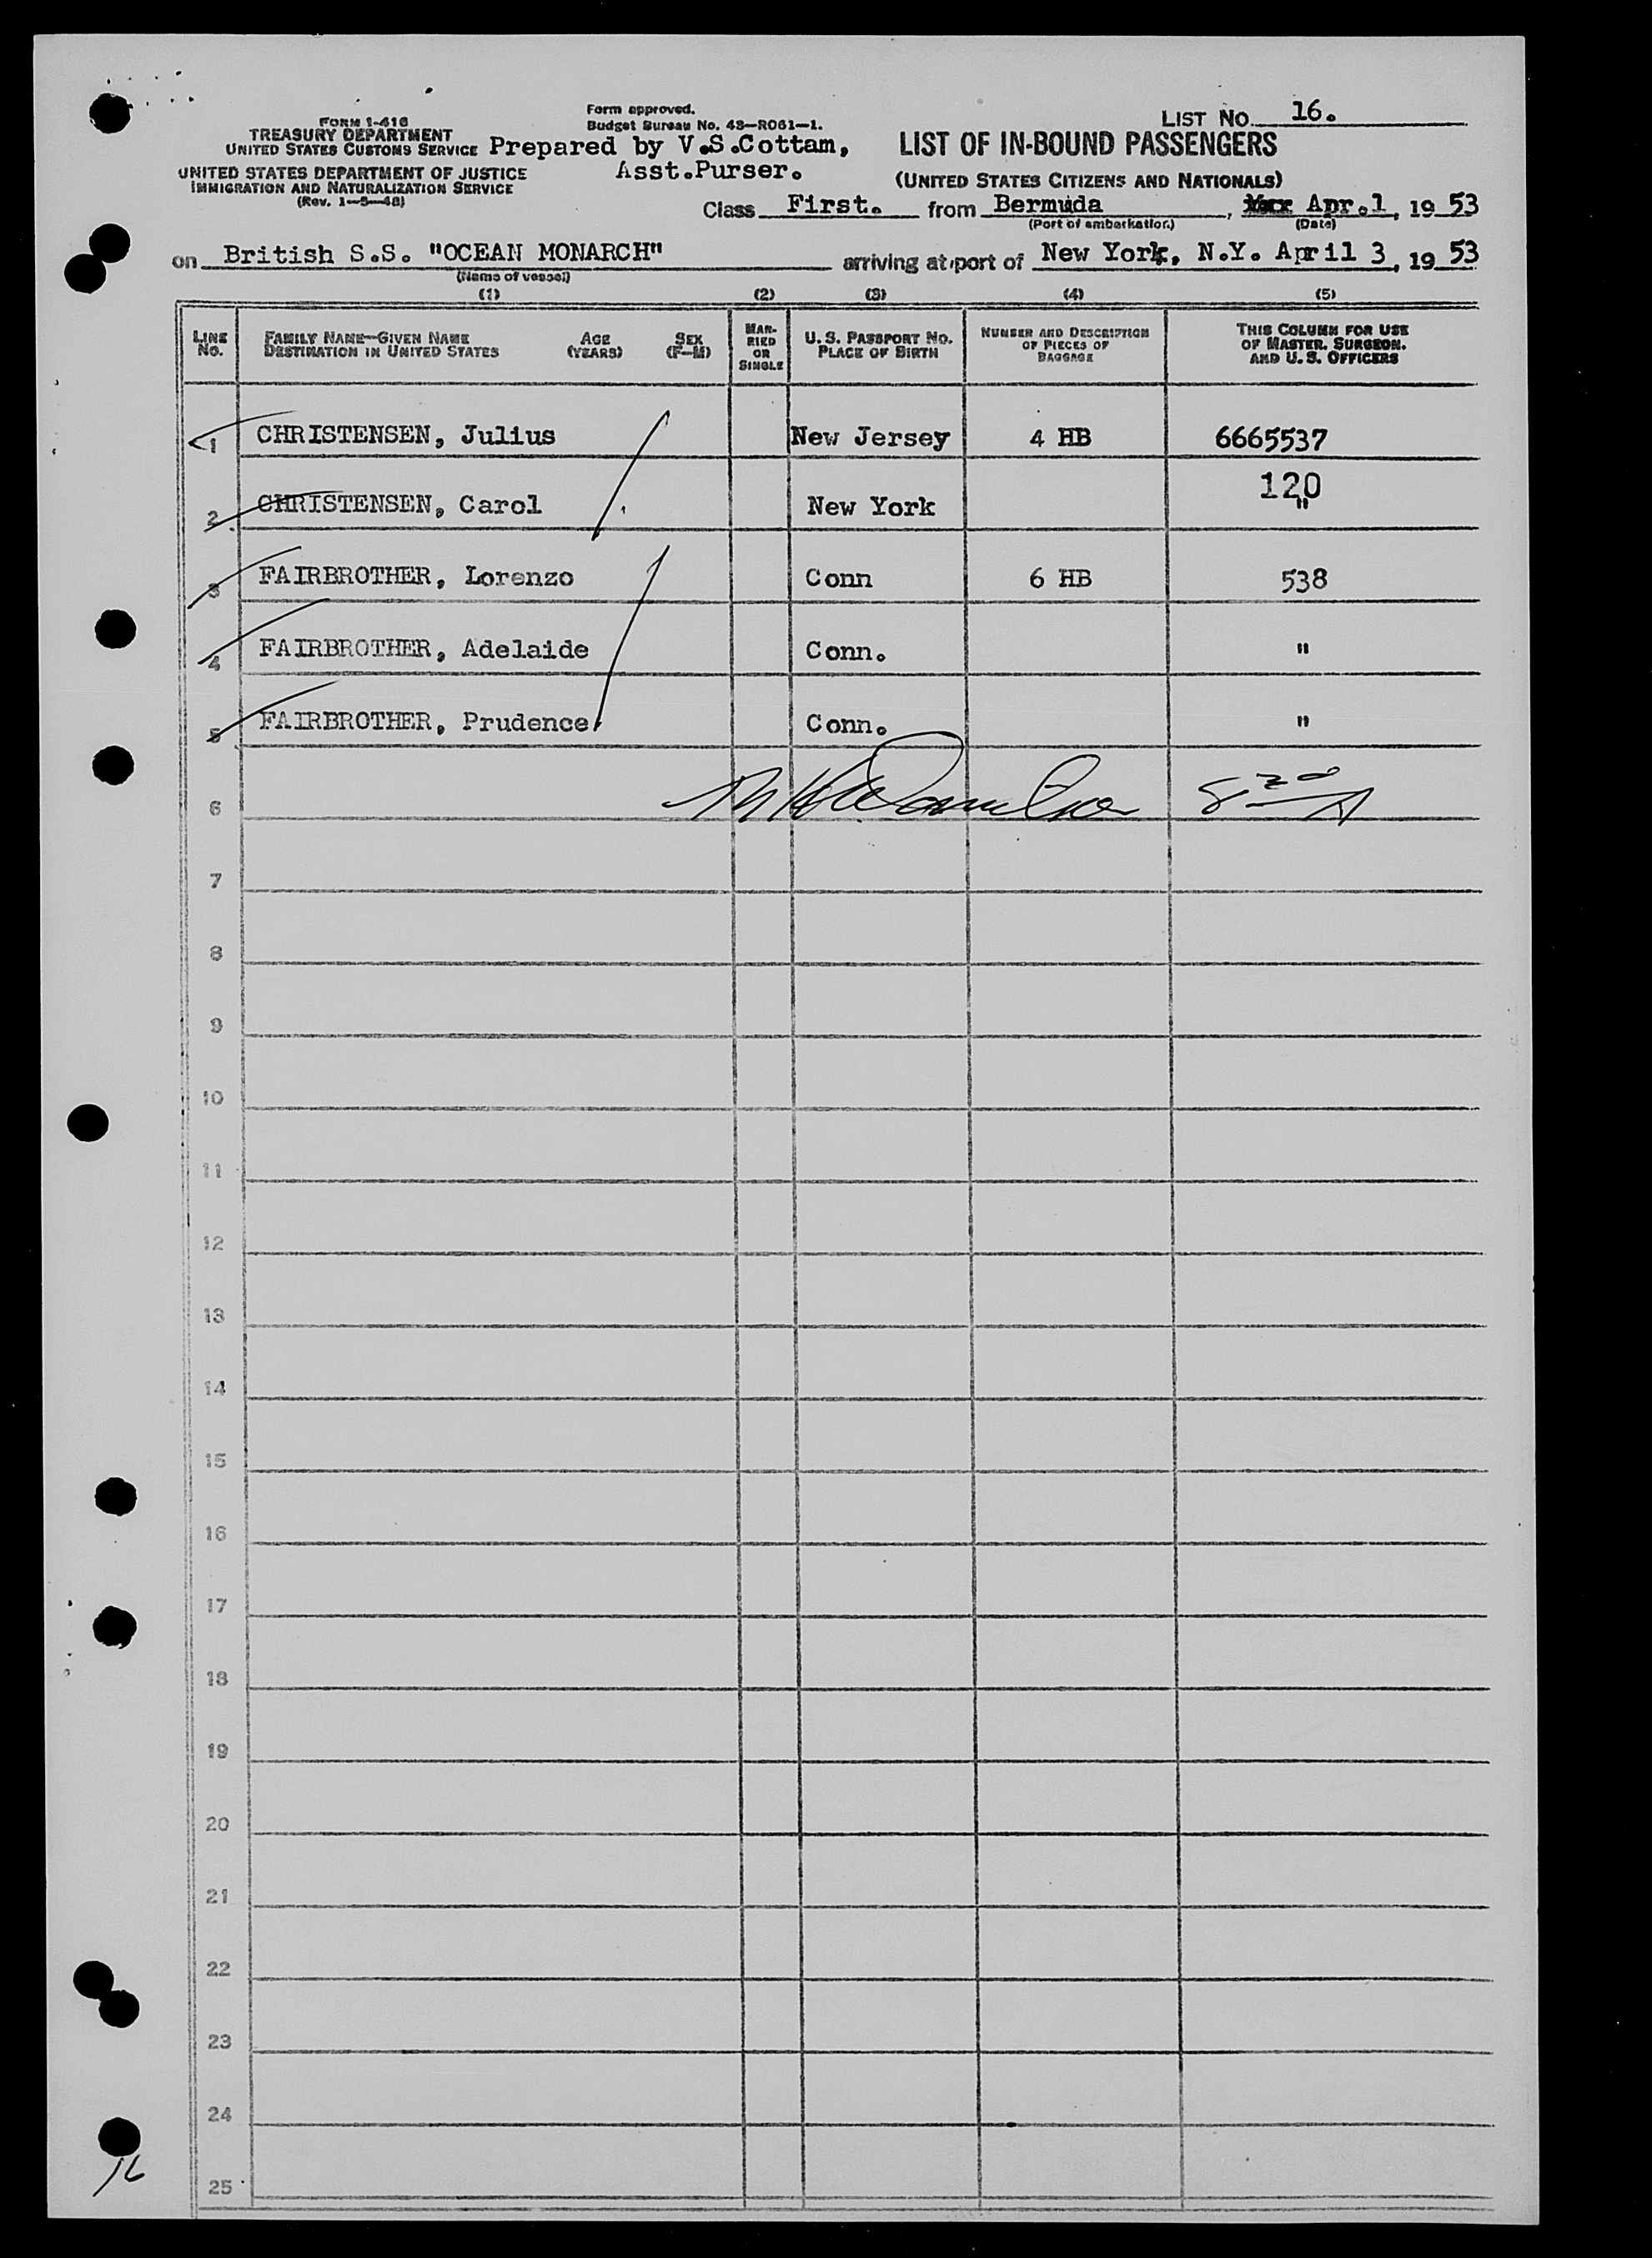 LIST NO. 16.
FORM I-416
TREASURY DEPARTMENT
UNITED STATES CUSTOMS SERVICE
UNITED STATES DEPARTMENT OF JUSTICE
IMMIGRATION AND NATURALIZATION SERVICE
(Rev. 1-5-48)
Form approved.
Budget Bureau No. 43-R061-1.
Prepared by V.S.Cottam,
Asst.Purser.
LIST OF IN-BOUND PASSENGERS
(UNITED STATES CITIZENS AND NATIONALS)
Class First. from Bermuda, Apr.1, 19 53
(Port of embarkation) (Date)
on British S.S. "OCEAN MONARCH" arriving at port of New York, N.Y. April 3, 19 53
(Name of vessel)
(1) (2) (3) (4) (5)
LINE No. FAMILY NAME—GIVEN NAME DESTINATION IN UNITED STATES AGE (YEARS) SEX (F—M) MARRIED OR SINGLE U. S. PASSPORT NO. PLACE OF BIRTH NUMBER AND DESCRIPTION OF PIECES OF BAGGAGE THIS COLUMN FOR USE OF MASTER, SURGEON, AND U. S. OFFICERS
1 CHRISTENSEN, Julius New Jersey 4 HB 6665537
120
2 CHRISTENSEN, Carol New York "
3 FAIRBROTHER, Lorenzo Conn 6 HB 538
4 FAIRBROTHER, Adelaide Conn. "
5 FAIRBROTHER, Prudence Conn. "
6
7
8
9
10
11
12
13
14
15
16
17
18
19
20
21
22
23
24
25
16